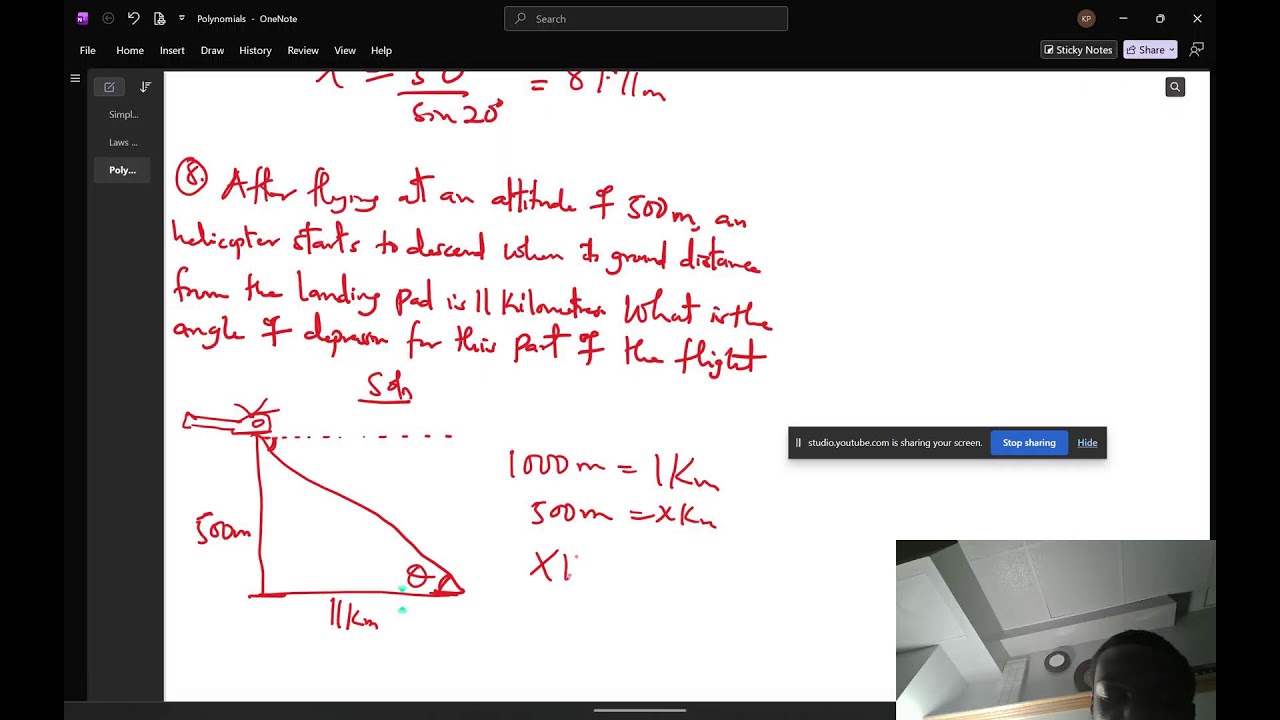 Polynomials - OneNote
Search
KP
File Home Insert Draw History Review View Help
Sticky Notes Share
Simpl...
Laws ...
Poly...
sin 20°
8. After flying at an altitude of 500m, an
helicopter starts to descend when its ground distance
from the landing pad is 11 kilometres. What is the
angle of depression for this part of the flight
Soln
500m
θ
11km
1000m = 1km
500m = x km
X
studio.youtube.com is sharing your screen. Stop sharing Hide